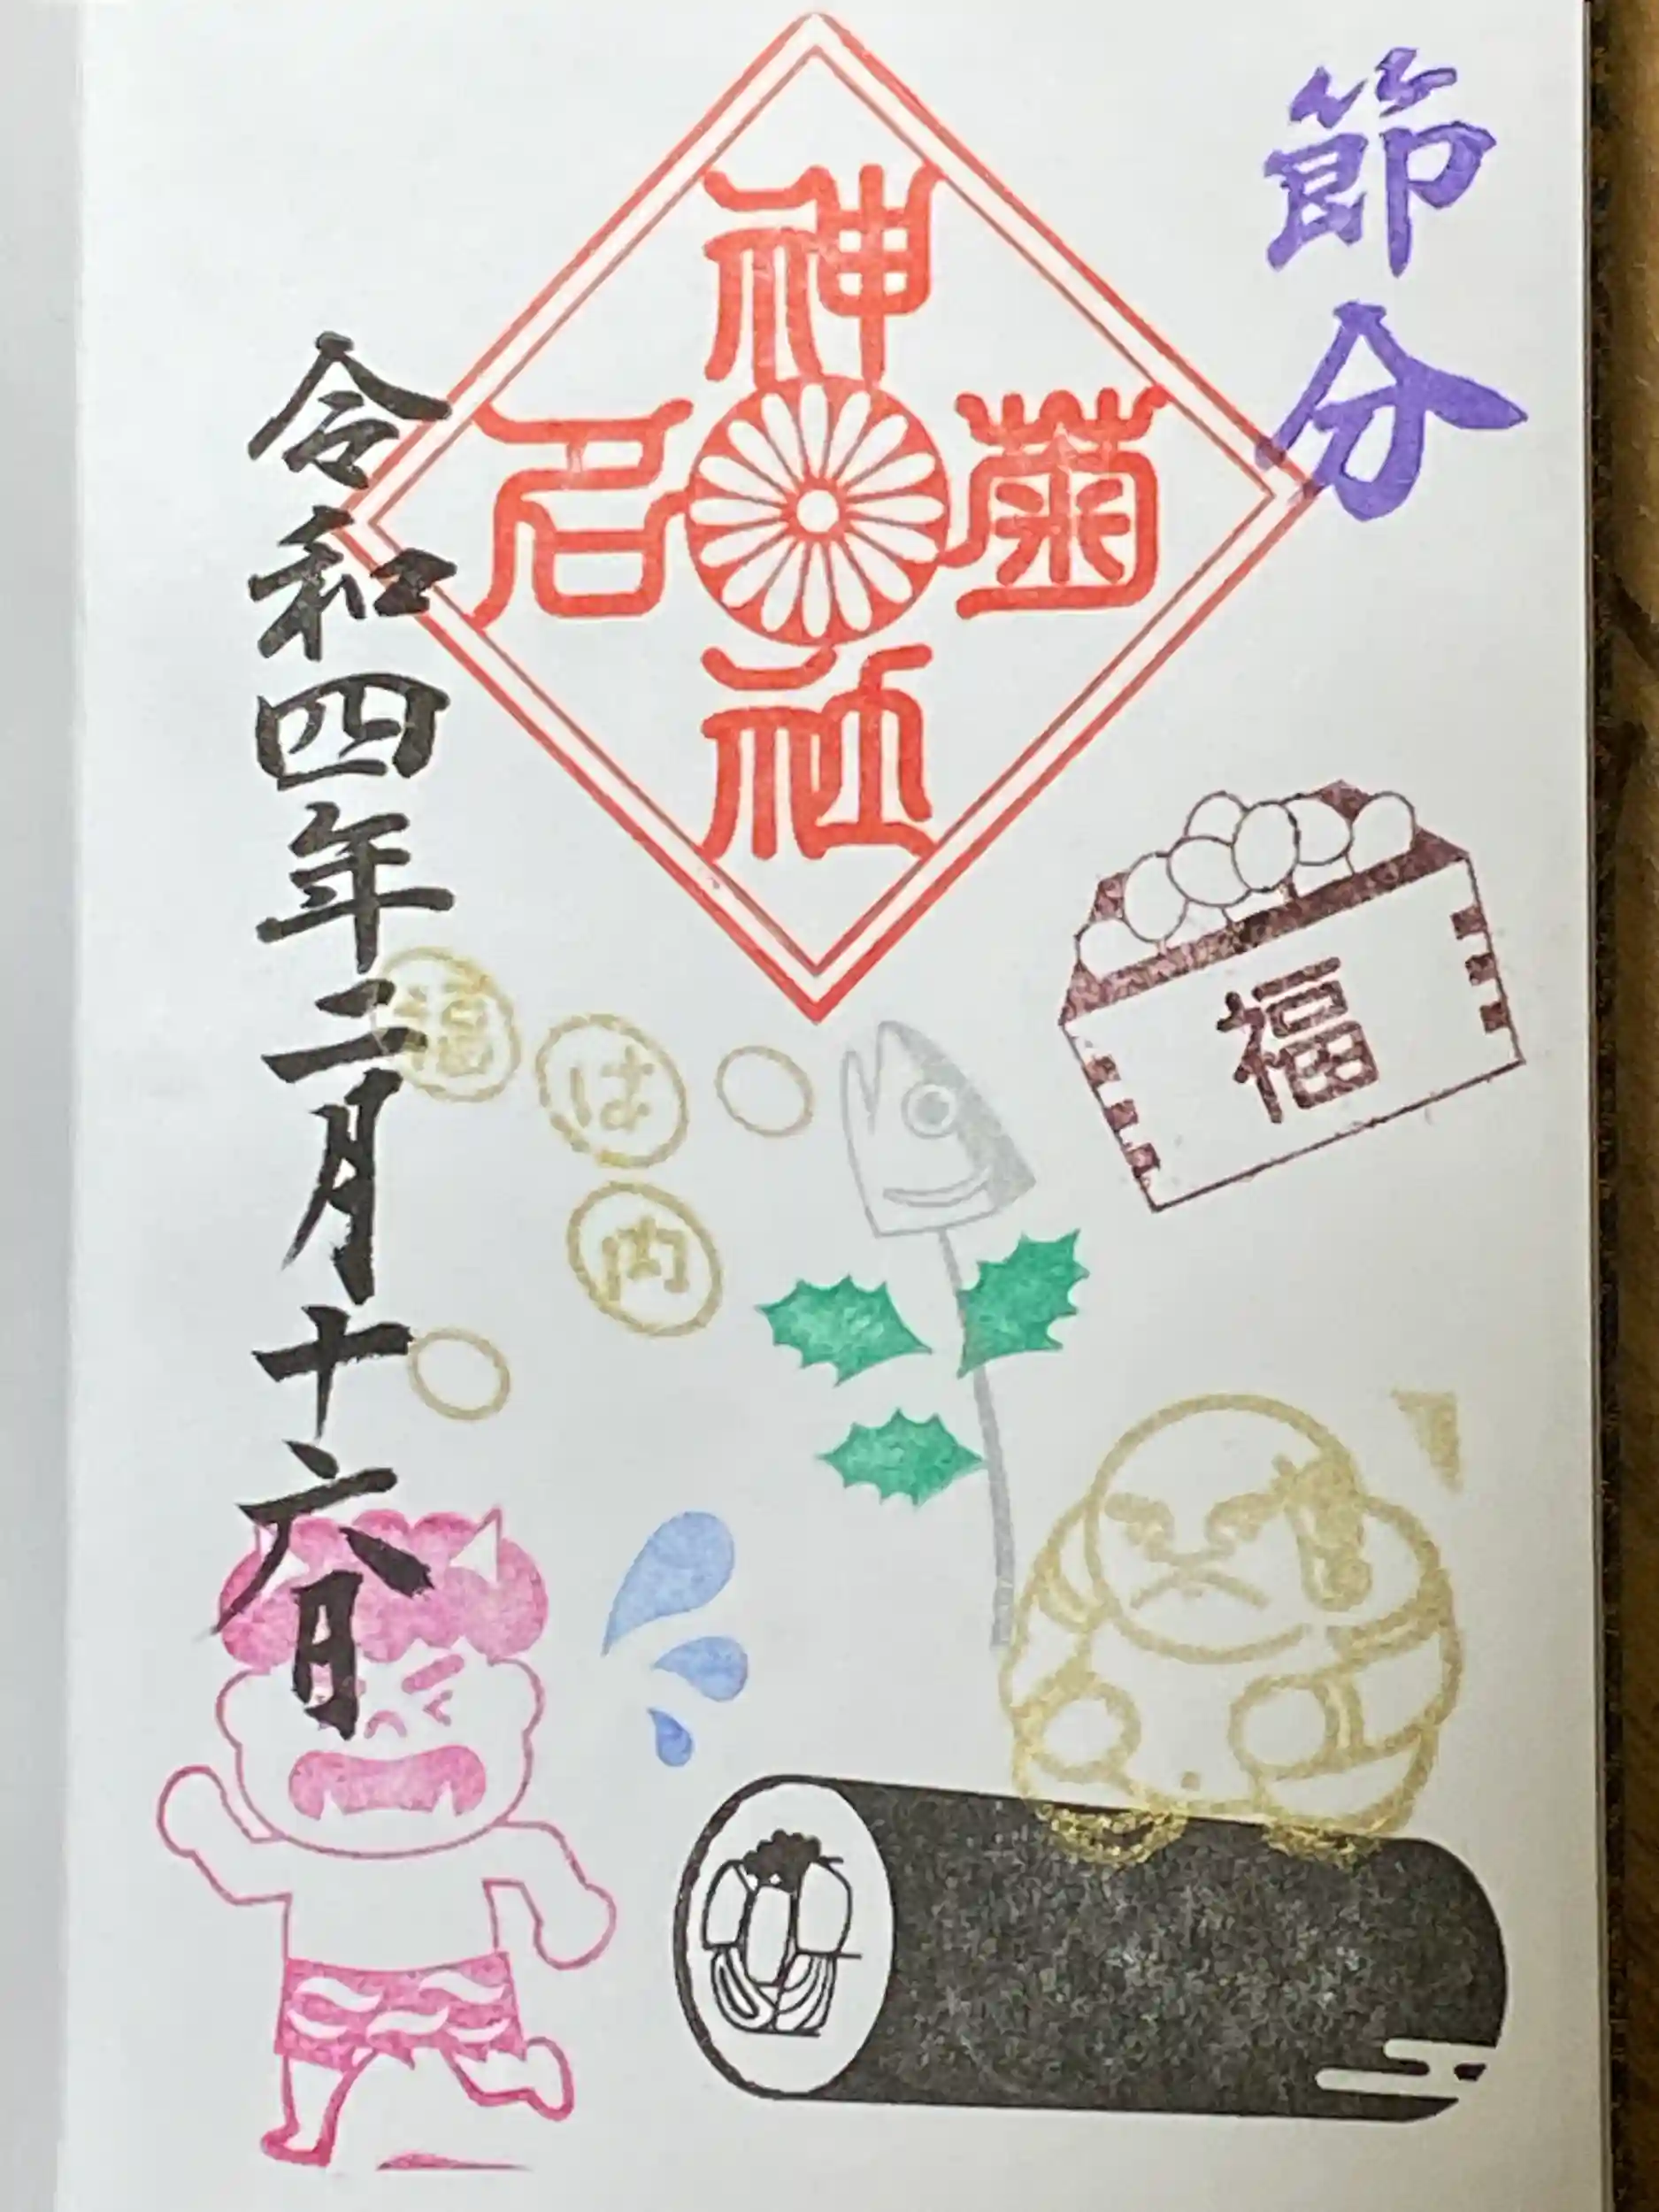 節分
菊名神社
福
福は内
令和四年二月十六日